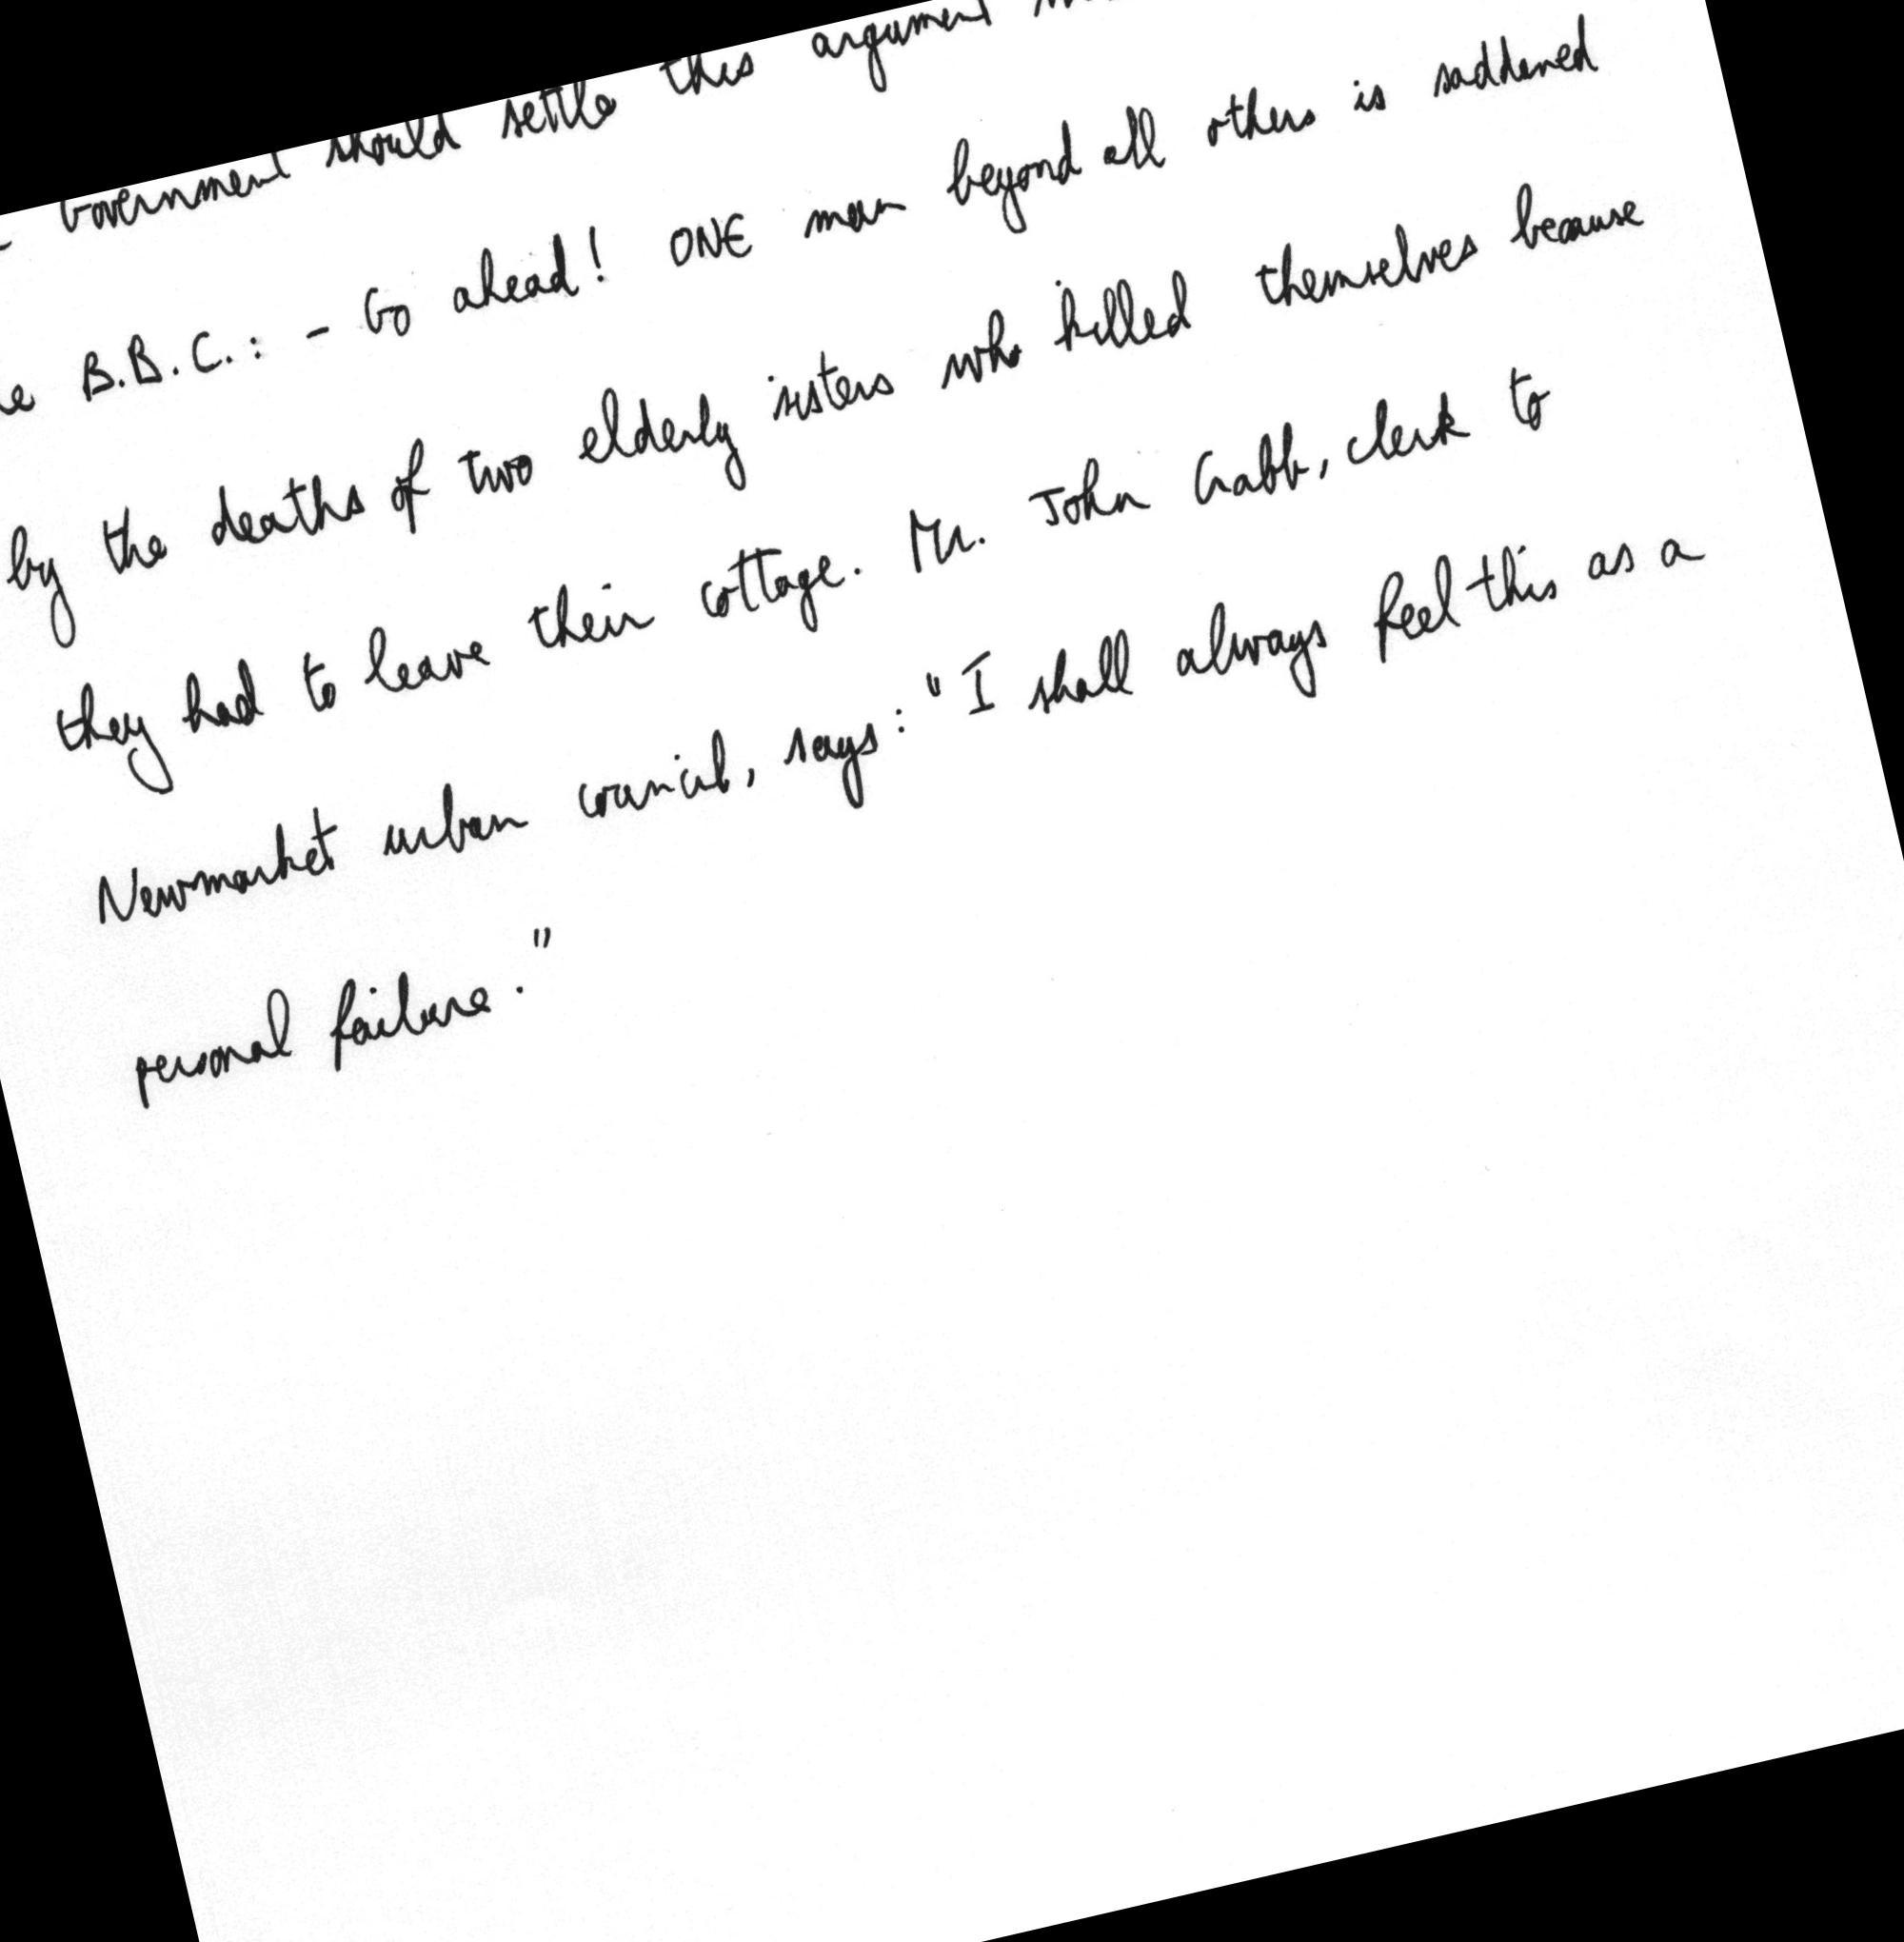 Government should settle this argument
B.B.C.: - Go ahead! ONE man beyond all others is saddened
by the deaths of two elderly sisters who killed themselves because
they had to leave their cottage. Mr. John Crabb, clerk to
Newmarket urban council, says: "I shall always feel this as a
personal failure."